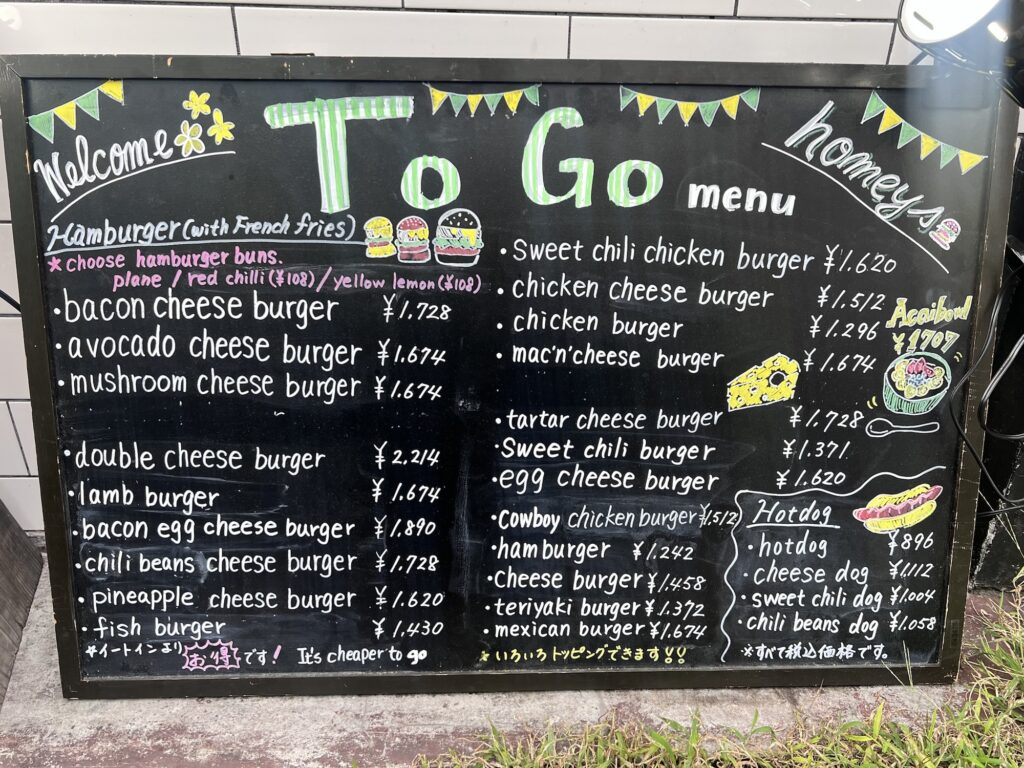 Welcome
To Go menu
homeys
Hamburger (with French fries)
★choose hamburger buns.
plane / red chilli (¥108) / yellow lemon (¥108)
・bacon cheese burger ¥1.728
・avocado cheese burger ¥1.674
・mushroom cheese burger ¥1.674
・double cheese burger ¥2,214
・lamb burger ¥1.674
・bacon egg cheese burger ¥1.890
・chili beans cheese burger ¥1.728
・pineapple cheese burger ¥1.620
・fish burger ¥1,430
★イートインより お得です! It's cheaper to go
・Sweet chili chicken burger ¥1.620
・chicken cheese burger ¥1.512
・chicken burger ¥1.296
・mac'n'cheese burger ¥1.674
・tartar cheese burger ¥1.728
・Sweet chili burger ¥1.371
・egg cheese burger ¥1.620
・Cowboy chicken burger ¥1.512
・hamburger ¥1.242
・Cheese burger ¥1.458
・teriyaki burger ¥1.372
・mexican burger ¥1.674
★いろいろトッピングできます!!
Acaibowl
¥1707
Hotdog
・hotdog ¥896
・cheese dog ¥1.112
・sweet chili dog ¥1.004
・chili beans dog ¥1.058
※すべて税込価格です。